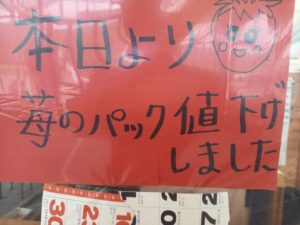 本日より
苺のパック値下げ
しました
30
23
16